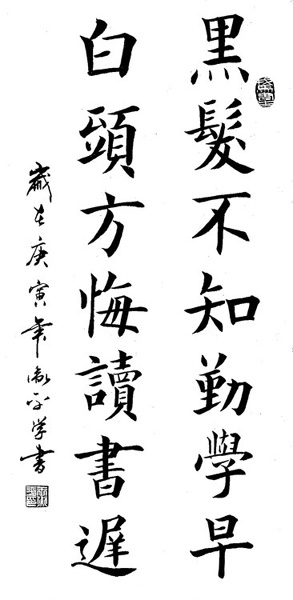 黑髮不知勤學早
白頭方悔讀書遲
歲在庚寅年衛平学書